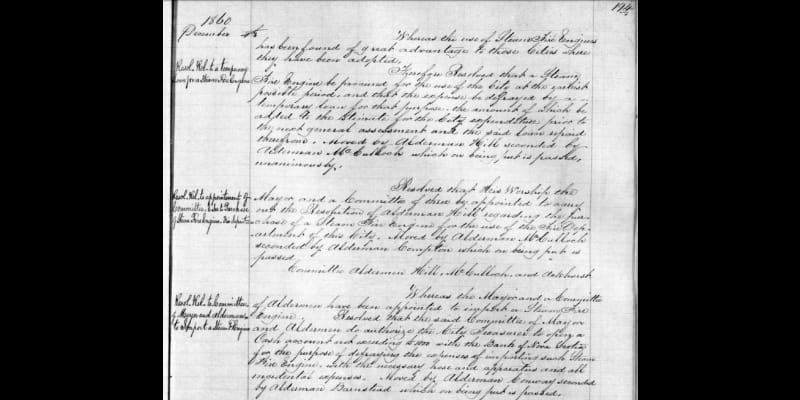 194
1860
December 4th
Whereas the use of Steam Fire Engines
has been found of great advantage to those Cities where
they have been adopted.
Resol. Rel. to a temporary
loan for a Steam Fire Engine
Therefore Resolved that a Steam
Fire Engine be procured for the use of the City at the earliest
possible period, and that the expense be defrayed by a
temporary loan for that purpose, the amount of which be
added to the Estimate for the City expenditure prior to
the next general assessment and the said loan repaid
therefrom. Moved by Alderman Hill seconded by
Alderman McCulloch which on being put is passed,
unanimously.
Resol. Rel. to appointment of
Committee to Purchase
Steam Fire Engine
Resolved that His Worship the
Mayor and a Committee of three be appointed to carry
out the Resolution of Alderman Hill regarding the pur-
chase of a Steam Fire Engine for the use of the Fire Dep-
artment of this City. Moved by Alderman McCulloch
seconded by Alderman Compton which on being put is
passed.
Committee Aldermen Hill, McCulloch, and
Resol. Rel. to Committee
of Mayor and Aldermen
to Import a Steam F. Engine
Whereas the Mayor and a Committee
of Aldermen have been appointed to import a Steam Fire
Engine. Resolved that the said Committee of Mayor
and Aldermen do authorize the City Treasurer to open a
Cash account not exceeding with the Bank of Nova Scotia
for the purpose of defraying the expenses of importing such Steam
Fire Engine, with the necessary hose and apparatus and all
incidental expenses. Moved by Alderman Conway seconded
by Alderman Barnstead which on being put is passed.